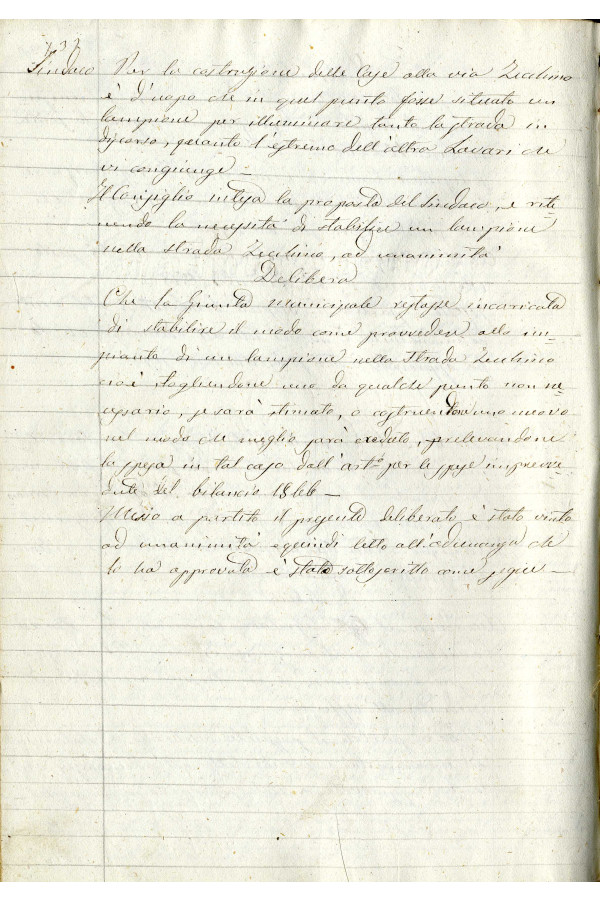 Sindaco Per la costruzione delle Case alla via Zecchino
è d'uopo che in quel punto fosse situato un
lampione per illuminare tanto la strada in
discorso, quanto l'estremo dell'altra Lavari che
vi congiunge –
Il Consiglio intesa la proposta del Sindaco, e rite-
nendo la necessità di stabilire un lampione
nella strada Zecchino, ad unanimità
Delibera
Che la Giunta Municipale restasse incaricata
di stabilire il modo come provvedere allo im-
pianto di un lampione nella Strada Zecchino
cioè togliendone uno da qualche punto non ne-
cessario, se sarà stimato, o costruendone uno nuovo
nel modo che meglio sarà creduto, prelevandone
la spesa in tal caso dall'arto per le spese imprevve
dute del bilancio 1866 –
Messo a partito il presente deliberato, è stato vinto
ad unanimità e quindi letto all'adunanza che
lo ha approvato è stato sottoscritto come segue –